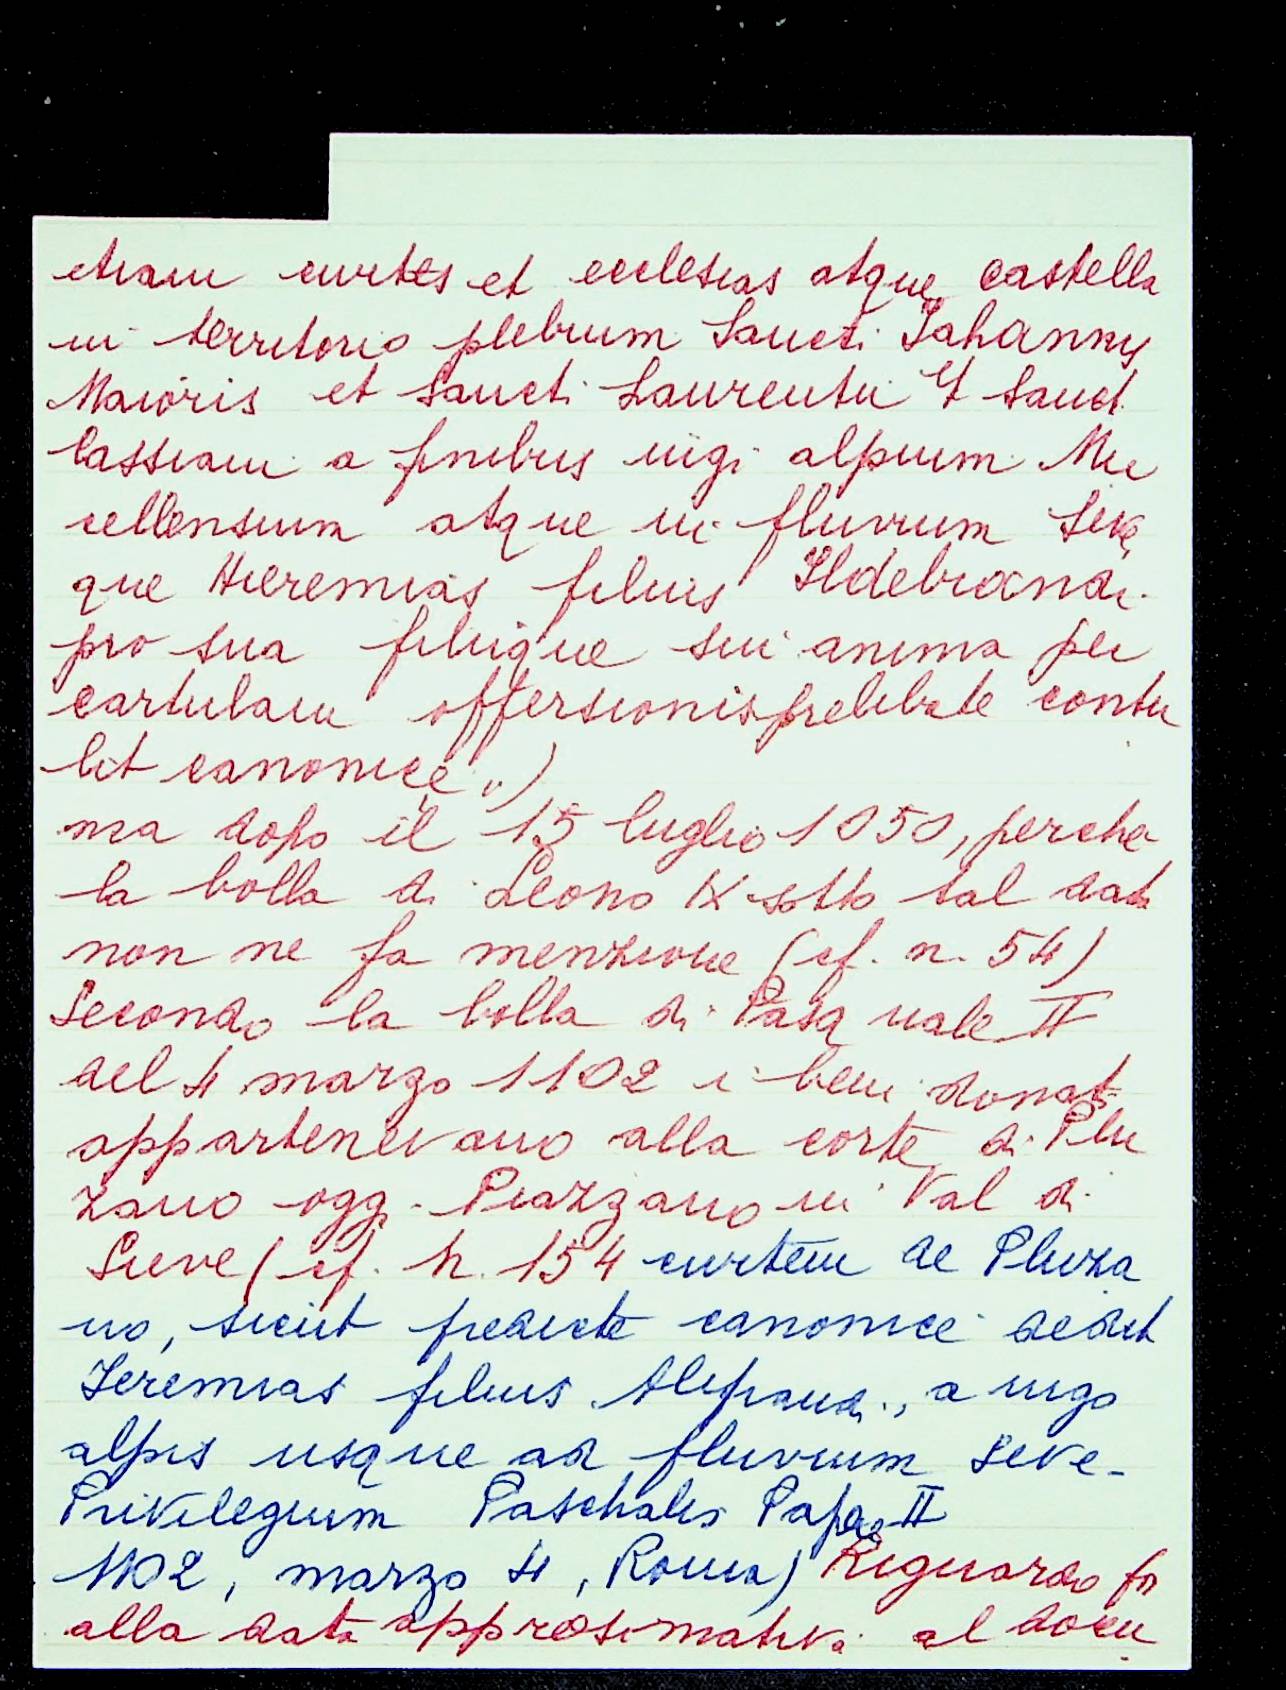 etiam curtes et ecclesias atque castella
in territorio plebium Sancti Iohannis
Maioris et Sancti Laurentii et Sancti
Cassiani a finibus iugi alpium Mu
cellensium atque in fluvium Seve,
que Hieremias filius Ildebrandi
pro sua filiique sui anima per
cartulam offersionis prelibate contu
lit canonice")
ma dopo il 15 luglio 1050, perche
la bolla di Leono IX sotto tal data
non ne fa menzione (cf. n. 54)
Secondo la bolla di Pasquale II
del 4 marzo 1102 i beni donati
appartenevano alla corte di Plu
zano oggi Piazzano in Val di
Sieve (cf. n. 154 curtem de Pluza
no, sicut predicte canonice dedit
Ieremias filius Aliprandi, a iugo
alpis usque ad fluvium Seve -
Privilegium Paschalis Papae II
1102, marzo 4, Roma) Riguardo
alla data approsimativa al docu